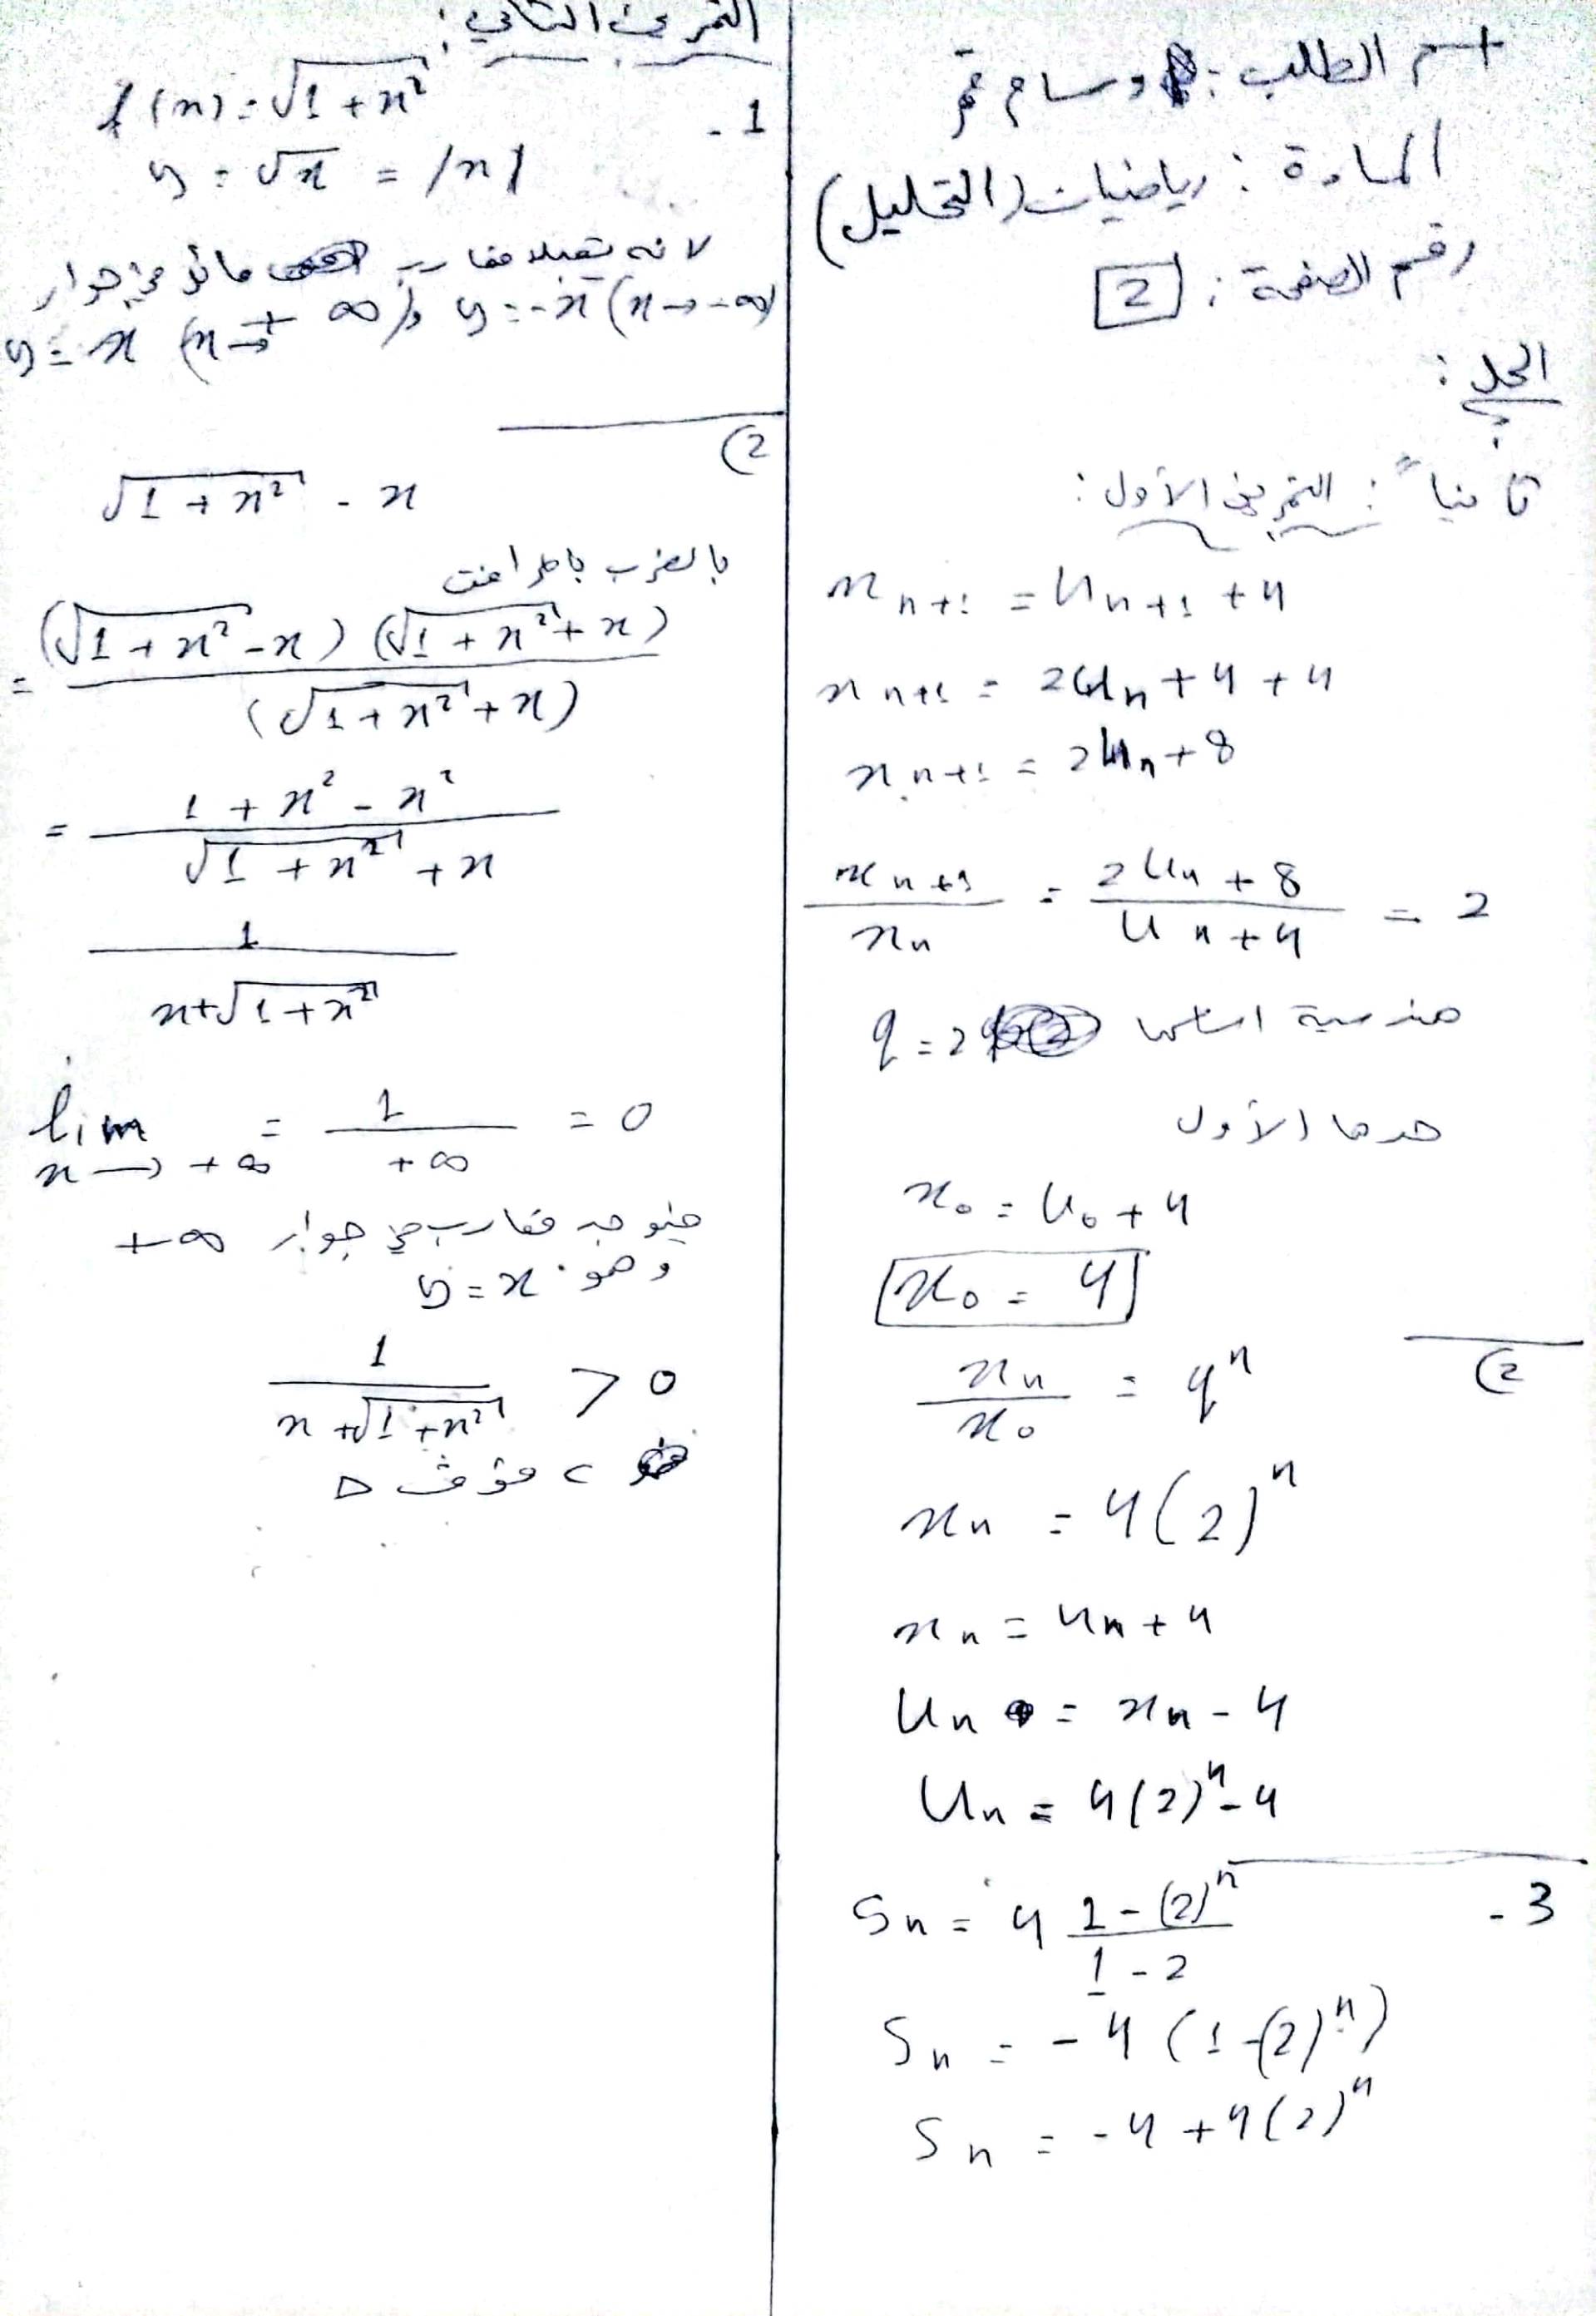 اسم الطالب: وسام قمر
المادة: رياضيات (التحليل)
رقم الصفحة: 2
الحل:
ثانياً: التمرين الأول:
x n+1 = Un+1 + 4
x n+1 = 2Un + 4 + 4
x n+1 = 2Un + 8
x n+1 / xn = 2Un + 8 / Un + 4 = 2
هندسية اساسها q = 2
حدها الأول
x0 = U0 + 4
x0 = 4
2)
xn / x0 = q^n
xn = 4(2)^n
xn = Un + 4
Un = xn - 4
Un = 4(2)^n - 4
3 -
Sn = 4 1 - (2)^n / 1 - 2
Sn = -4 (1 - (2)^n)
Sn = -4 + 4(2)^n
التمرين الثاني:
1 -
f(x) = √1 + x²
y = √x = |x|
لانه يقبل مقارب مائل في جوار
y = -x (x → -∞) و
y = x (x → +∞)
2)
√1 + x² - x
بالضرب بالمرافق
= (√1 + x² - x) (√1 + x² + x) / (√1 + x² + x)
= 1 + x² - x² / √1 + x² + x
1 / x + √1 + x²
lim x → +∞ = 1 / +∞ = 0
مقارب في جوار +∞
وهو y = x
1 / x + √1 + x² > 0
C فوق Δ